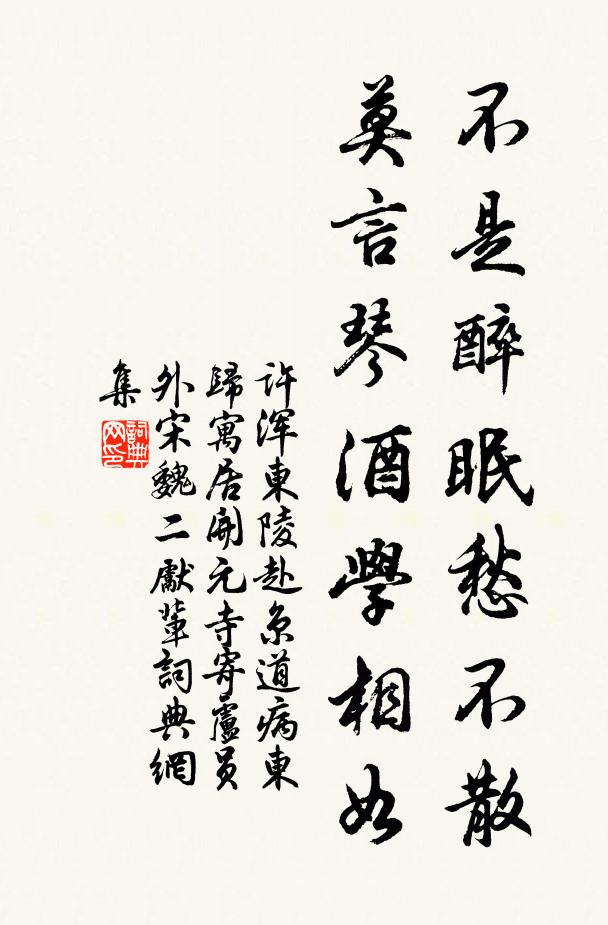 不是醉眠愁不散
莫言琴酒學相如
許渾東陵赴京道病東
歸寓居開元寺寄盧員
外宋魏二獻輩詞典網
集
詞典
网印